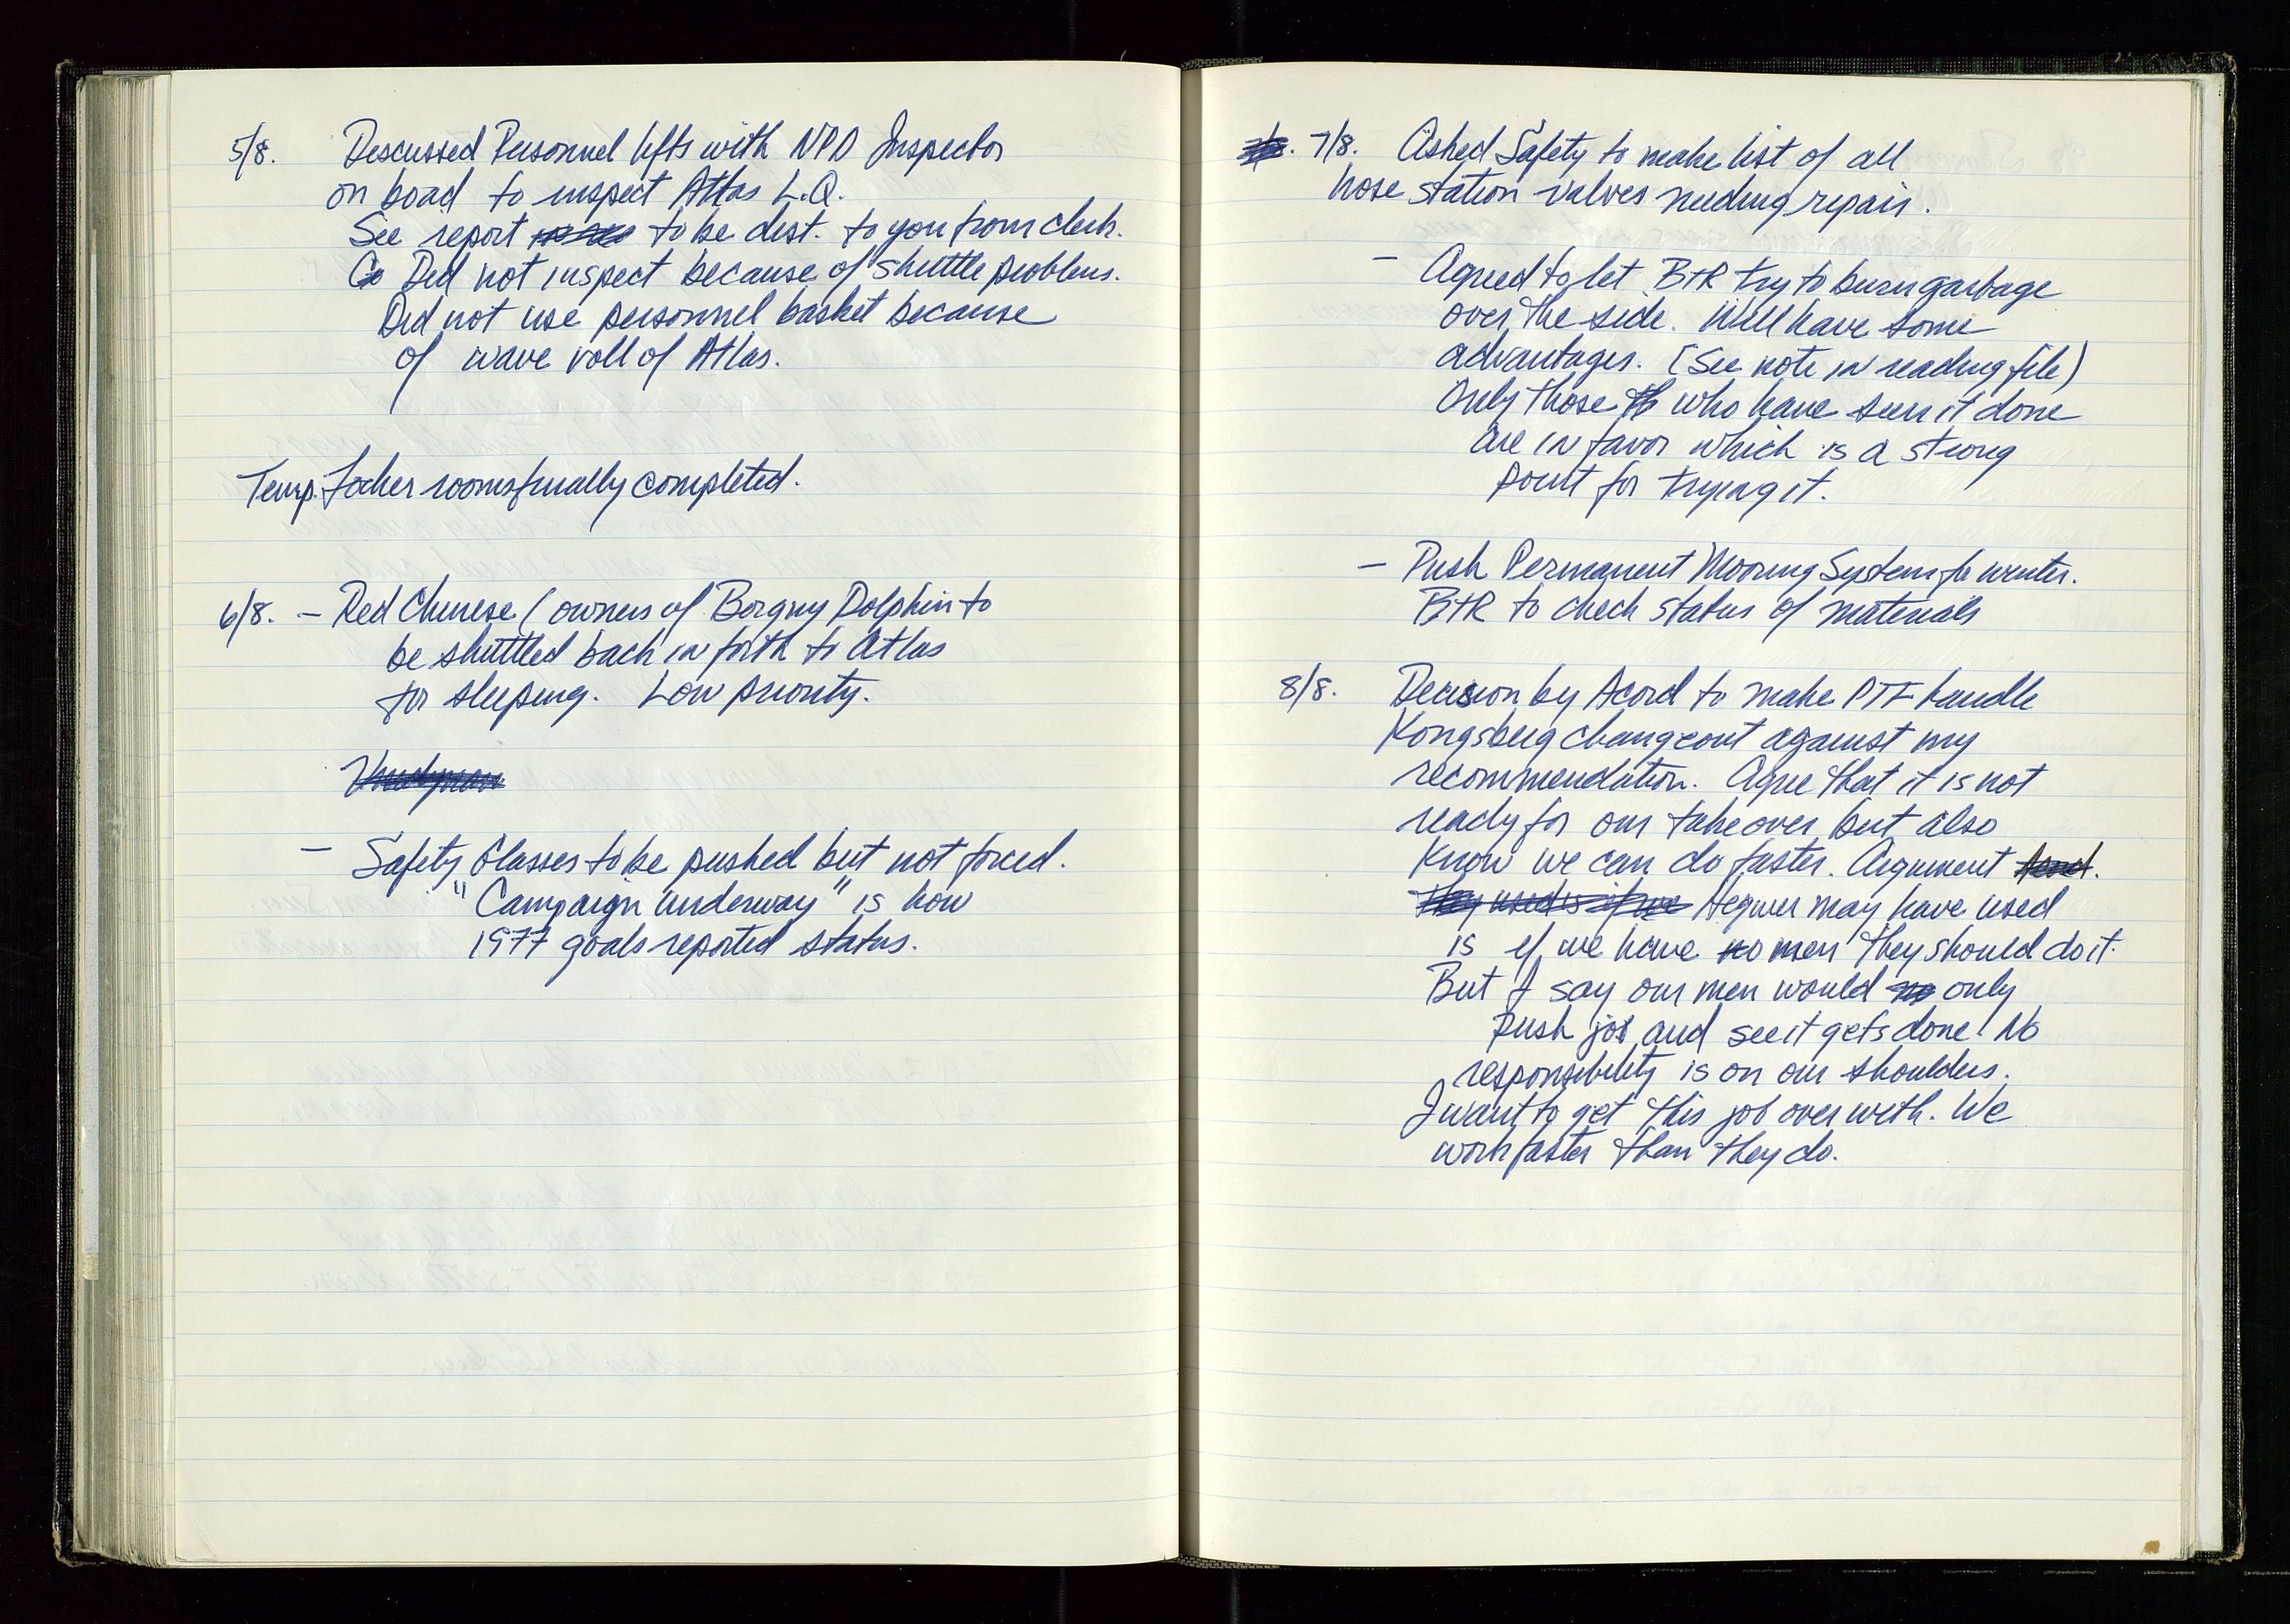 5/8. Discussed Personnel lifts with NPD Inspector
on boad to inspect Atlas L.Q.
See report to be dist. to you from clerk.
Co Did not inspect because of shuttle problems.
Did not use personnel basket because
of wave roll of Atlas.
Temp. Locker rooms finally completed.
6/8. - Red Chinese (owners of Borgny Dolphin to
be shuttled back in forth to Atlas
for sleeping. Low priority.
- Safety Glasses to be pushed but not forced.
"Campaign underway" is how
1977 goals reported status.
7/8. Asked Safety to make list of all
hose station valves needing repair.
- Agreed to let B+R try to burn garbage
over the side. Will have some
advantages. (See note in reading file)
Only those who have seen it done
are in favor which is a strong
point for trying it.
- Push Permanent Mooring System for winter.
B+R to check status of materials
8/8. Decision by Acord to make PTF handle
Kongsberg changeout against my
recommendation. Agree that it is not
ready for our takeover but also
know we can do faster. Argument
may have used
is if we have no men they should do it.
But I say our men would only
push job and see it gets done. No
responsibility is on our shoulders.
I want to get this job over with. We
work faster than they do.